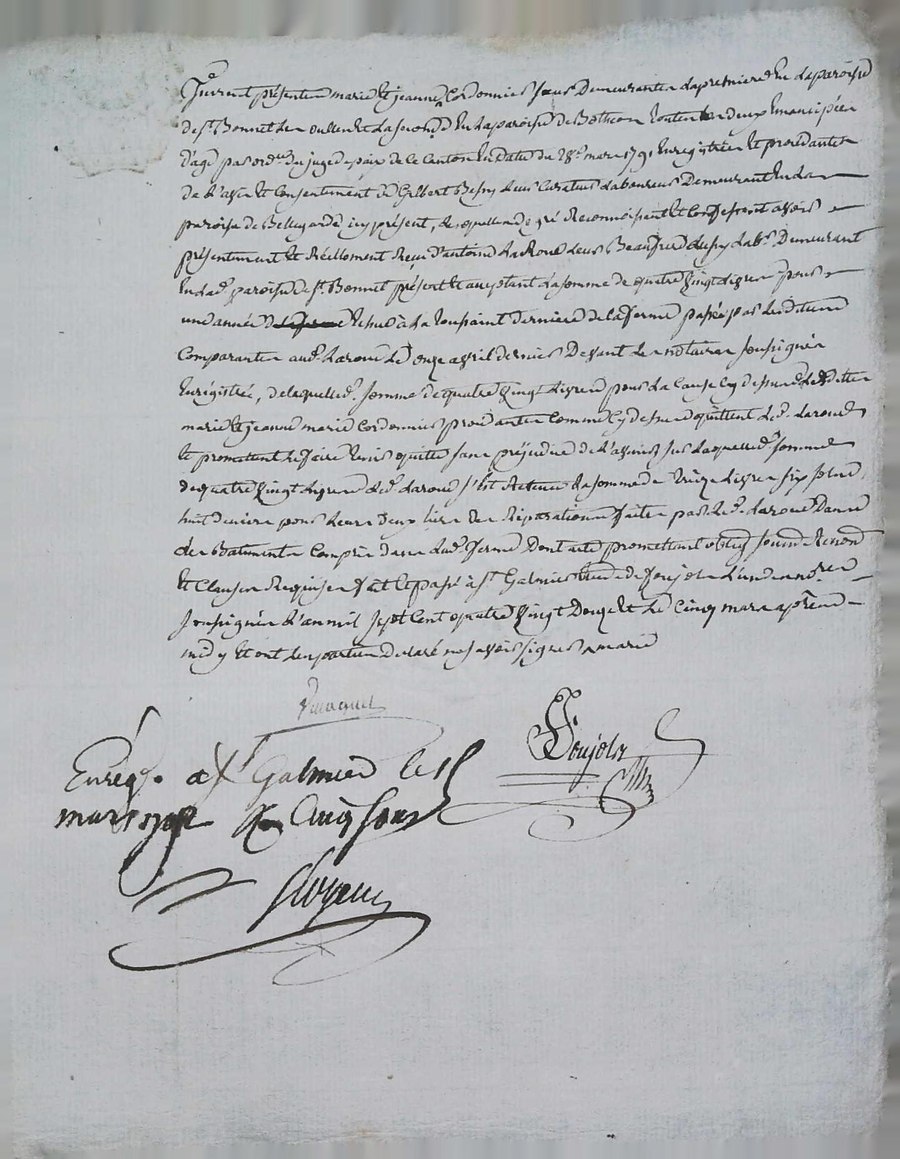 furent présentes marie et jeanne Cordonnier sœurs Demeurantes la premiere En la paroisse
de st. Bonnet Les oulles et La seconde En la paroisse de Botheon toutes les deux Emancipées
D'age par ordce. du juge de paix de ce Canton En datte du 28e. mars 1791 Enregistrée et procédantes
de L'avis et Consentement de Gilbert leur Curateur Laboureur Demeurant En la
paroisse de Bellegarde icy présent, Lesquelles de gré Reconnoissent et Confessent avoir
présentement et Réellement Reçu d'antoine Laroue leur Beaufrere aussy Labr. Demeurant
En lad. paroisse de st. Bonnet présent et acceptant la somme de quatre vingt Livres pour
une année Echue à La toussaint derniere de la ferme passée par les dittes
Comparantes aud. Laroue Le onze avril dernier Devant Les notaires soussignés
Enrégistrée, de laquelle d. somme de quatre vingt Livres pour La Cause Cy dessus Les dittes
marie et jeanne marie Cordonnier procédantes Comme Cy dessus quittent led. Laroue
et promettent Le faire tenir quitte sans préjudice de L'avenir sur Laquelle d. somme
de quatre vingt Livres led. Laroue s'est Retenu La somme de treize Livres six sols
huit deniers pour Leurs Deux tiers Des Réparations faites par led. Laroue Dans
des Batiments Compris dans lad. ferme Dont acte promettant oblig soum Renon
et Clauses Requises fait et passé à st. Galmier Etude de Poujols L'un des nores.
soussignés L'an mil sept Cent quatre vingt Douze et Le Cinq mars après
midy et ont Les parties Déclaré ne savoir signer
Poujols
Enrég. a St Galmier le 15
mars 1792 Cinq sous